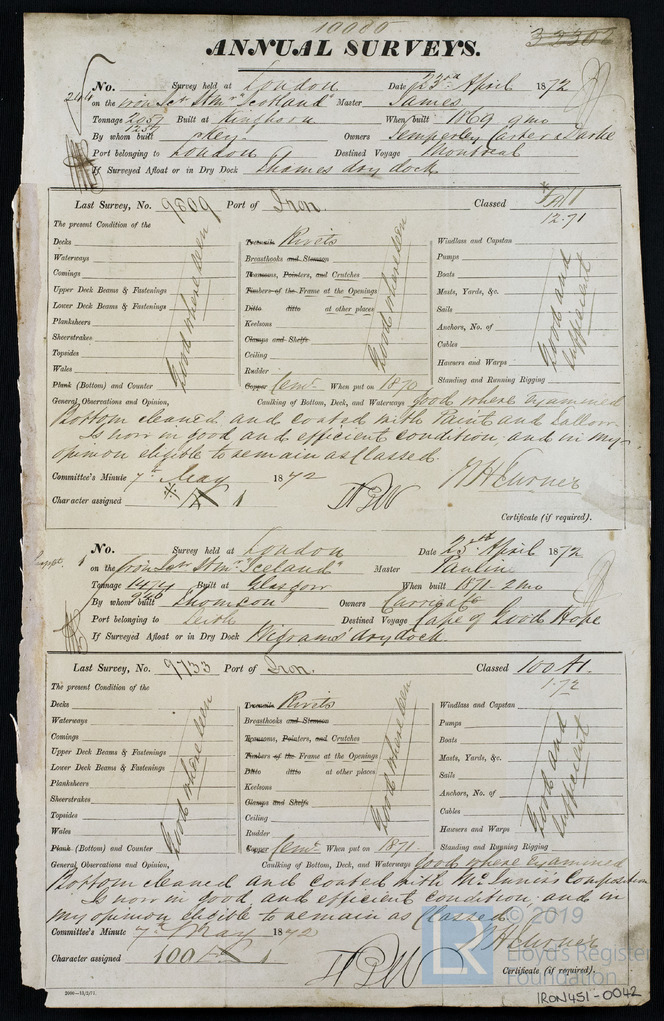 10080
33302
ANNUAL SURVEYS.
No. Survey held at London Date 23rd April 1872
244 on the Iron Scr Stmr "Scotland" Master James
Tonnage 2057 Built at Kinghorn When built 1869 9mo
1257
By whom built Key Owners Temperley Carter & Darke
Port belonging to London Destined Voyage Montreal
If Surveyed Afloat or in Dry Dock Thames dry dock
Last Survey, No. 9809 Port of Iron. Classed A 1
12.71
The present Condition of the
Decks Rivets Windlass and Capstan
Waterways Breasthooks and Stemson Pumps
Comings Transoms, Pointers, and Crutches Boats
Upper Deck Beams & Fastenings Timbers of the Frame at the Openings Masts, Yards, &c.
Lower Deck Beams & Fastenings Ditto ditto at other places Sails
Planksheers Keelsons Anchors, No. of
Sheerstrakes Clamps and Shelfs Cables
Topsides Ceiling Hawsers and Warps
Wales Rudder Standing and Running Rigging
Good where seen
Good where seen
Good and sufficient
Plank (Bottom) and Counter Copper Cemt. When put on 1870
General Observations and Opinion, Caulking of Bottom, Deck, and Waterways Good where Examined
Bottom cleaned and coated with Paint and Tallow.
Is now in good and efficient condition, and in my
opinion eligible to remain as Classed.
Committee's Minute 7th May 1872
Character assigned A 1
Certificate (if required).
No. Survey held at London Date April 1872
on the Iron Scr Stmr "Iceland" Master
Tonnage 1474 Built at Glasgow When built 1871-2mo
946
By whom built Thomson Owners Currie & Co
Port belonging to Leith Destined Voyage Cape of Good Hope
If Surveyed Afloat or in Dry Dock Wigrams dry dock.
Last Survey, No. 9733 Port of Iron. Classed 100 A1.
1.72
The present Condition of the
Decks Rivets Windlass and Capstan
Waterways Breasthooks and Stemson Pumps
Comings Transoms, Pointers, and Crutches Boats
Upper Deck Beams & Fastenings Timbers of the Frame at the Openings Masts, Yards, &c.
Lower Deck Beams & Fastenings Ditto ditto at other places Sails
Planksheers Keelsons Anchors, No. of
Sheerstrakes Clamps and Shelfs Cables
Topsides Ceiling
Wales Rudder Hawsers and Warps
Good where seen
Good where seen
Good and sufficient
Plank (Bottom) and Counter Copper Cemt. When put on 1871. Standing and Running Rigging
General Observations and Opinion, Caulking of Bottom, Deck, and Waterways Good where Examined
Bottom cleaned and coated with Mc Innis's Composition
Is now in good and efficient condition, and in
my opinion eligible to remain as Classed.
Committee's Minute 7th May 1872
Character assigned 100 A 1
Certificate (if required).
© 2019
LR
Lloyd's Register
Foundation
IRON451-0042